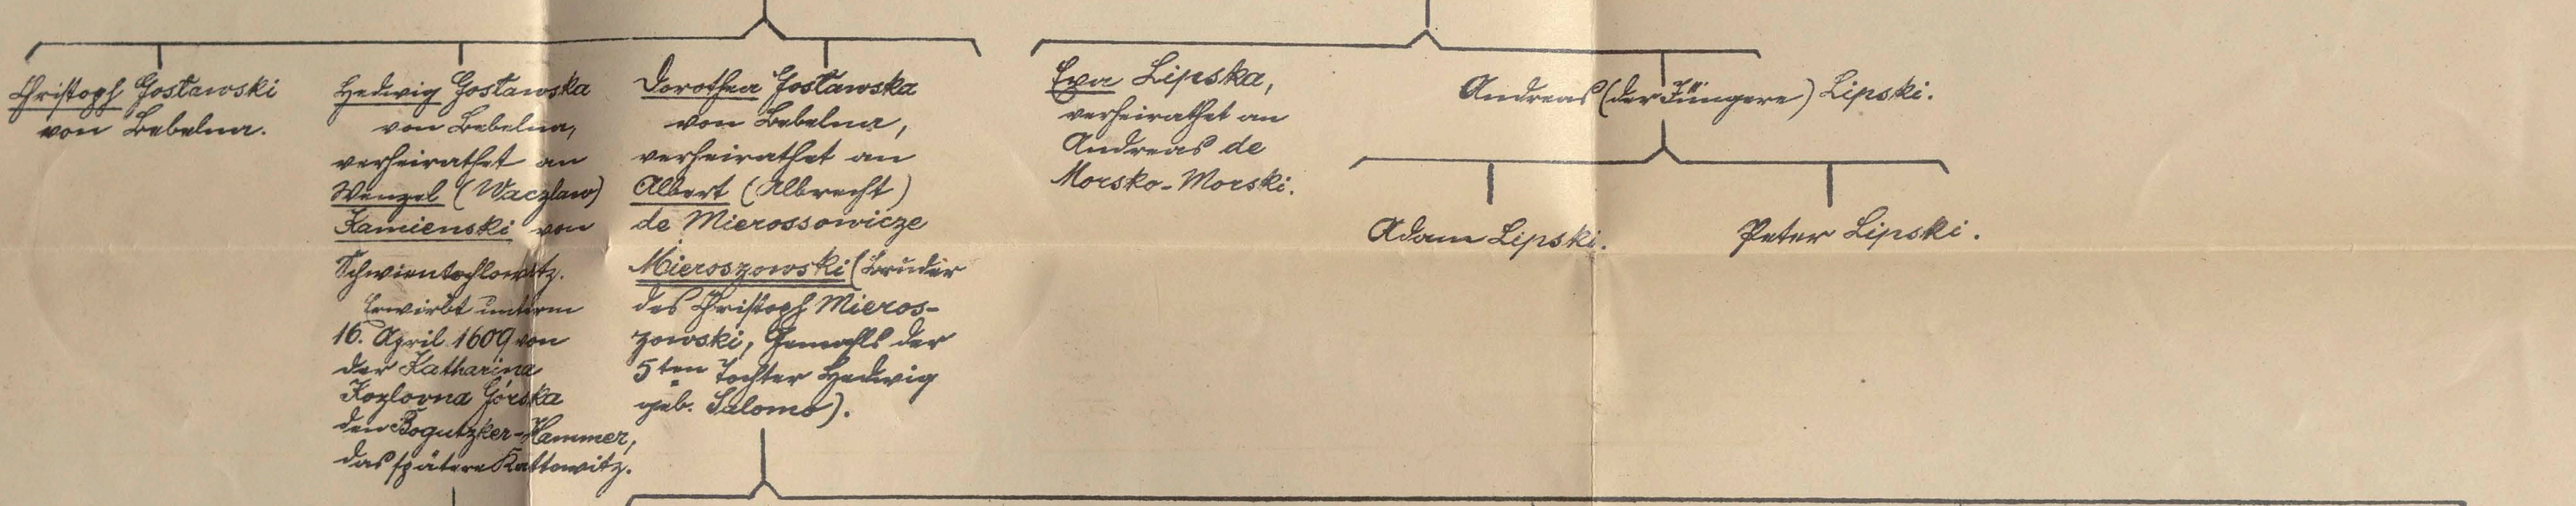 Christoph Gostawski
von Bebelna.
Hedwig Gostawska
von Bebelna,
verheirathet an
Wenzel (Waczlaw)
Kamienski von
Schwientochlowitz.
Erwirbt unterm
16. April 1609 von
der Katharina
Kozlovna Górska
den Bogutzker-Hammer,
das spätere Kattowitz.
Dorothea Gostawska
von Bebelna,
verheirathet an
Albert (Albrecht)
de Mierossowicze
Mieroszowski (Bruder
des Christoph Mieros-
zowski, Gemahls der
5ten Tochter Hedwig
geb. Salomo).
Eva Lipska,
verheirathet an
Andreas de
Morsko-Morski.
Andreas (der Jüngere) Lipski.
Adam Lipski.
Peter Lipski.